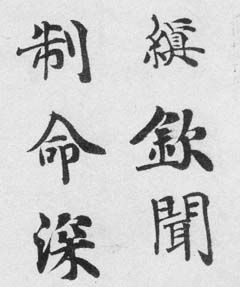 縝欽聞
制命深